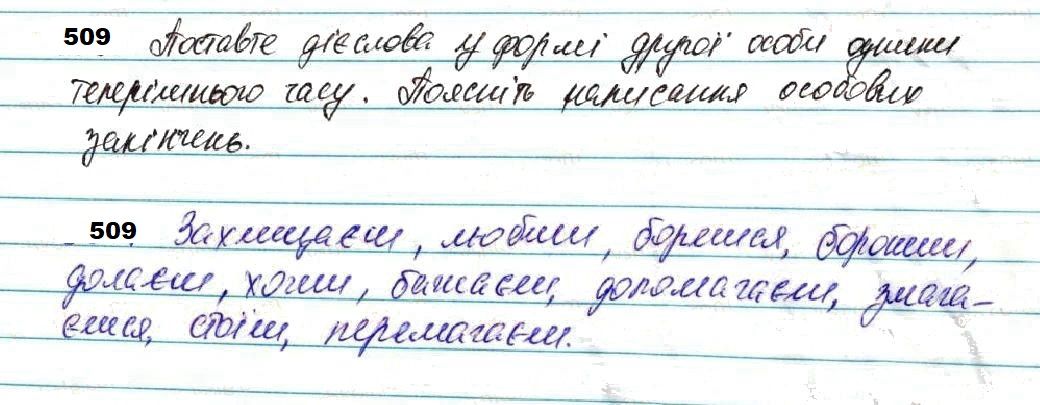 509 Поставте дієслова у формі другої особи однини
теперішнього часу. Поясніть написання особових
закінчень.
509 Захищаєш, любиш, борешся, борониш,
долаєш, хочеш, бажаєш, допомагаєш, змага-
єшся, стоїш, перемагаєш.